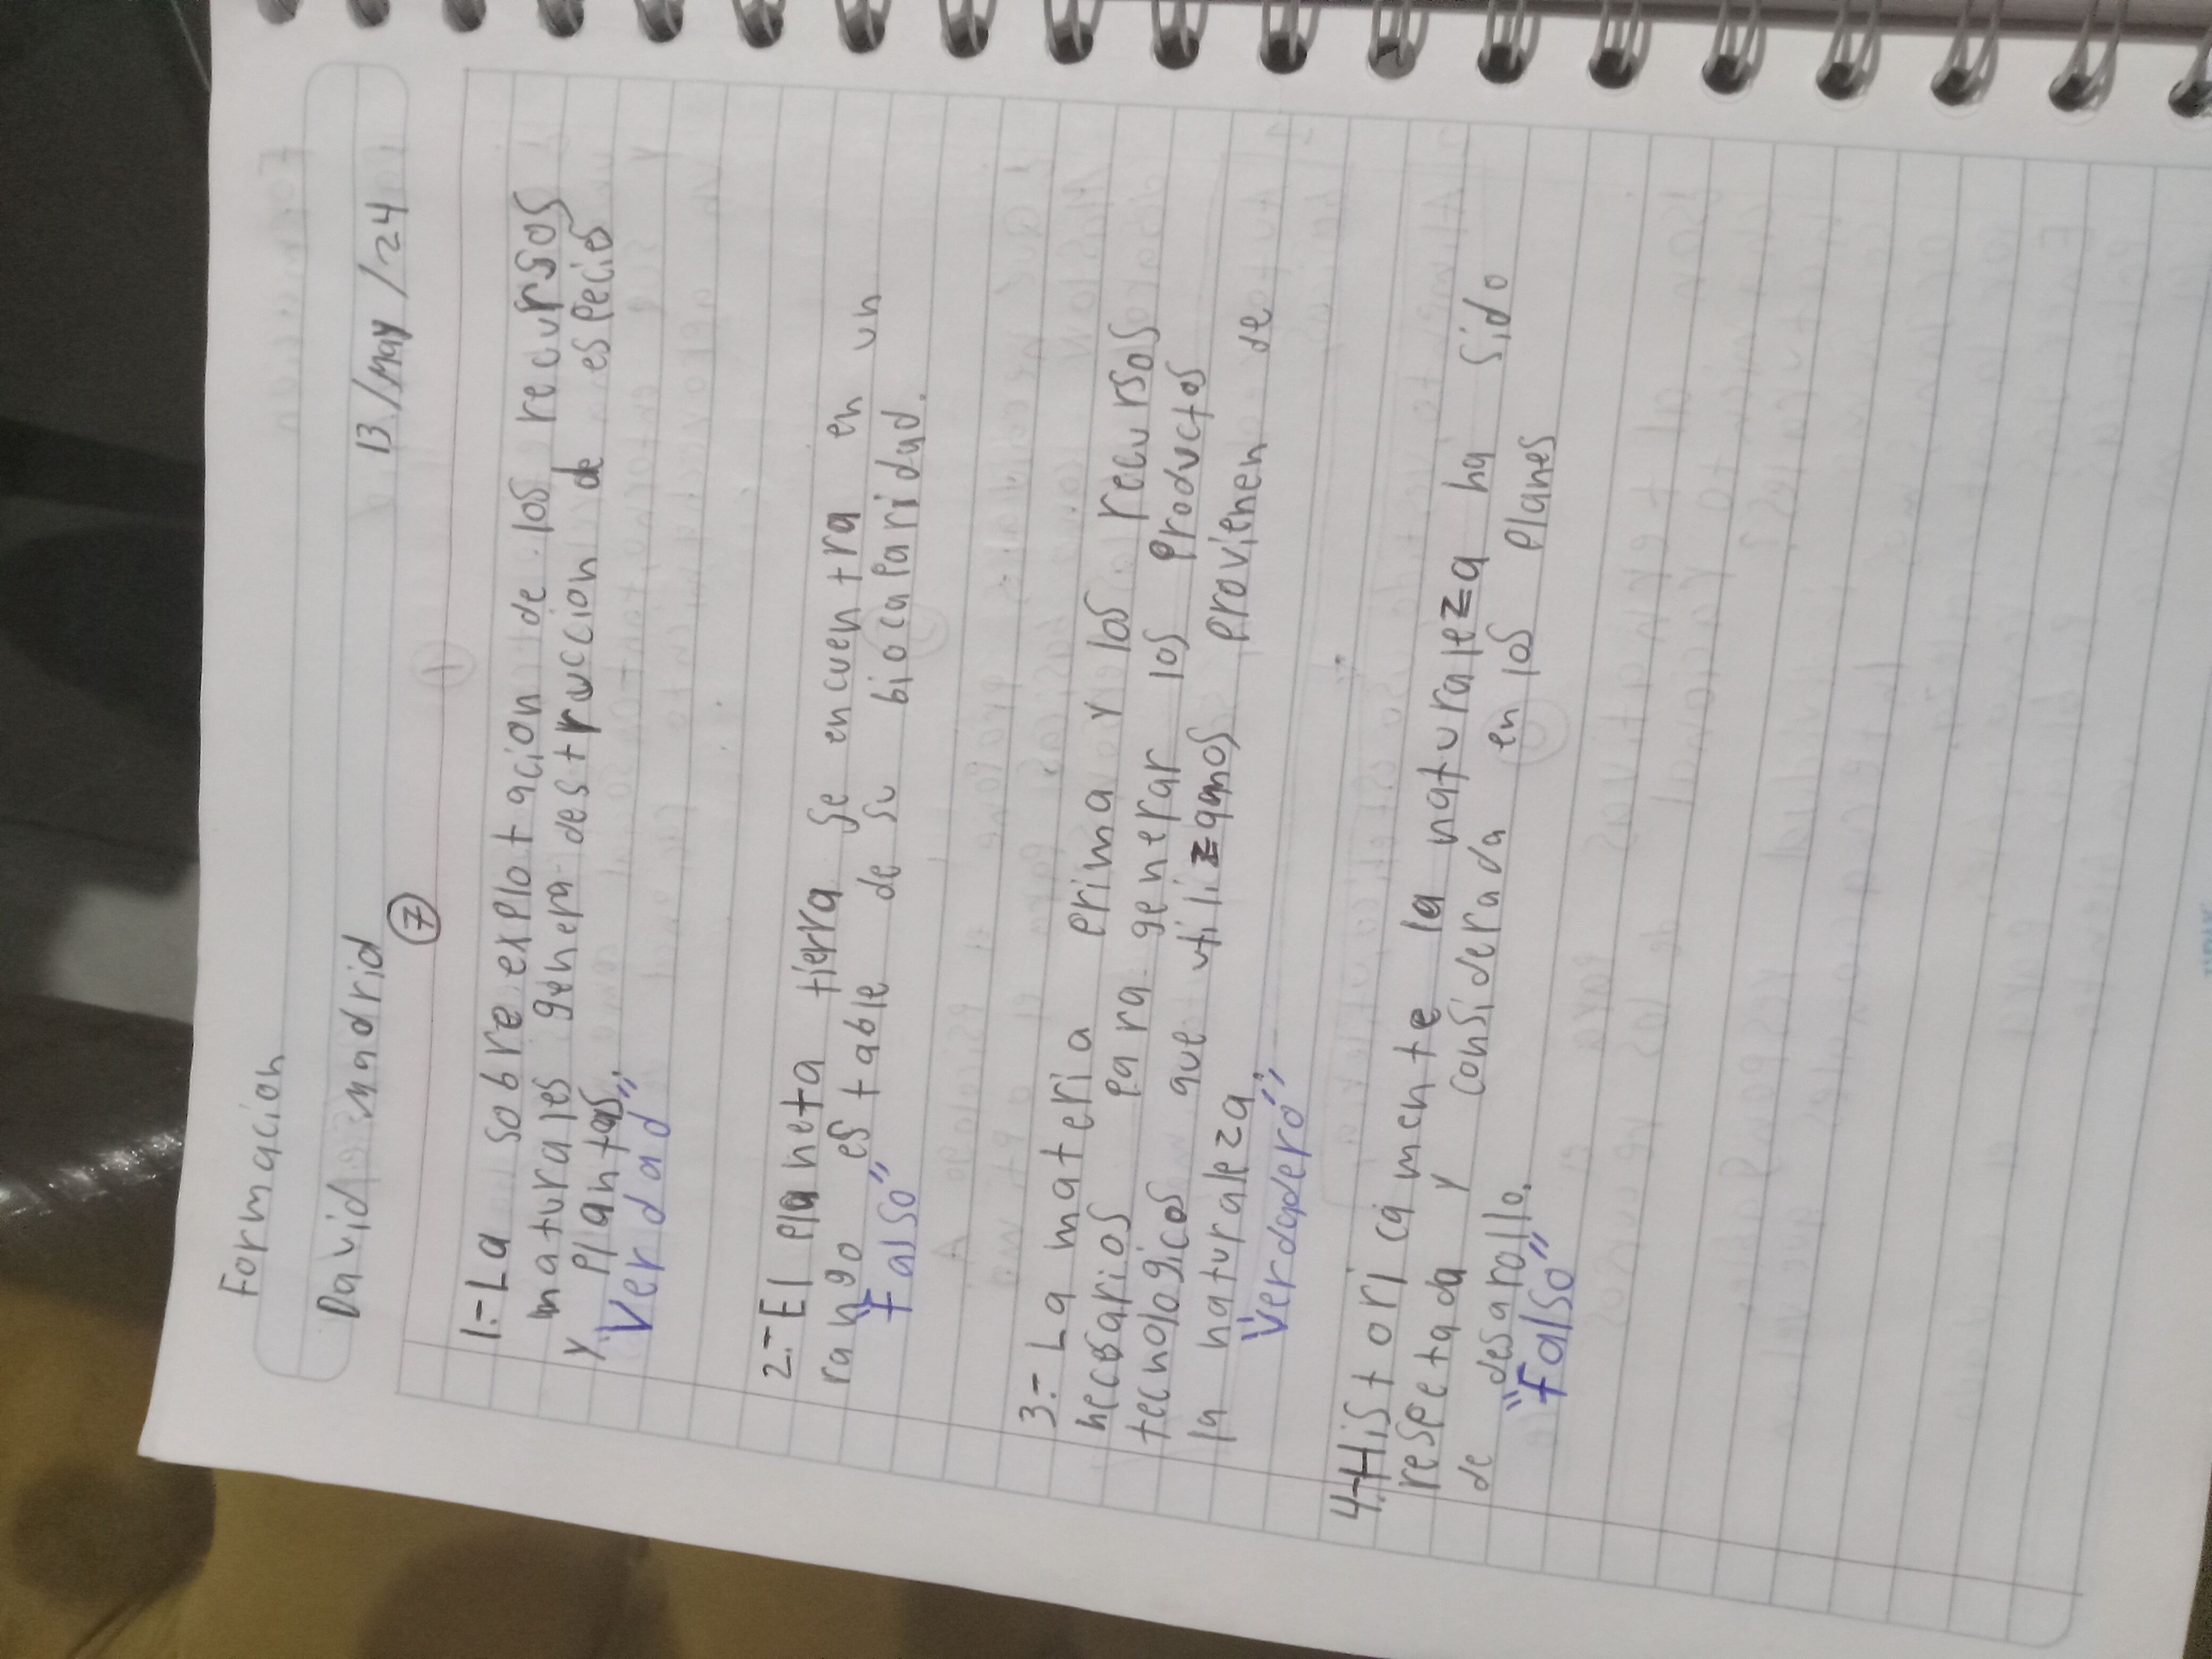 Formacion
David madrid 13/May/24
7
1.- La sobre explotacion de los recursos
naturales genera destruccion de especies
y plantas.
"Verdad"
2.- El planeta tierra se encuentra en un
rango estable de su biocaparidad.
"Falso"
3.- La materia prima y los recursos
necesarios para generar los productos
tecnologicos que utilizamos provienen de
la naturaleza
"Verdadero"
4.- Historicamente la naturaleza ha sido
respetada y considerada en los planes
de desarollo.
"Falso"